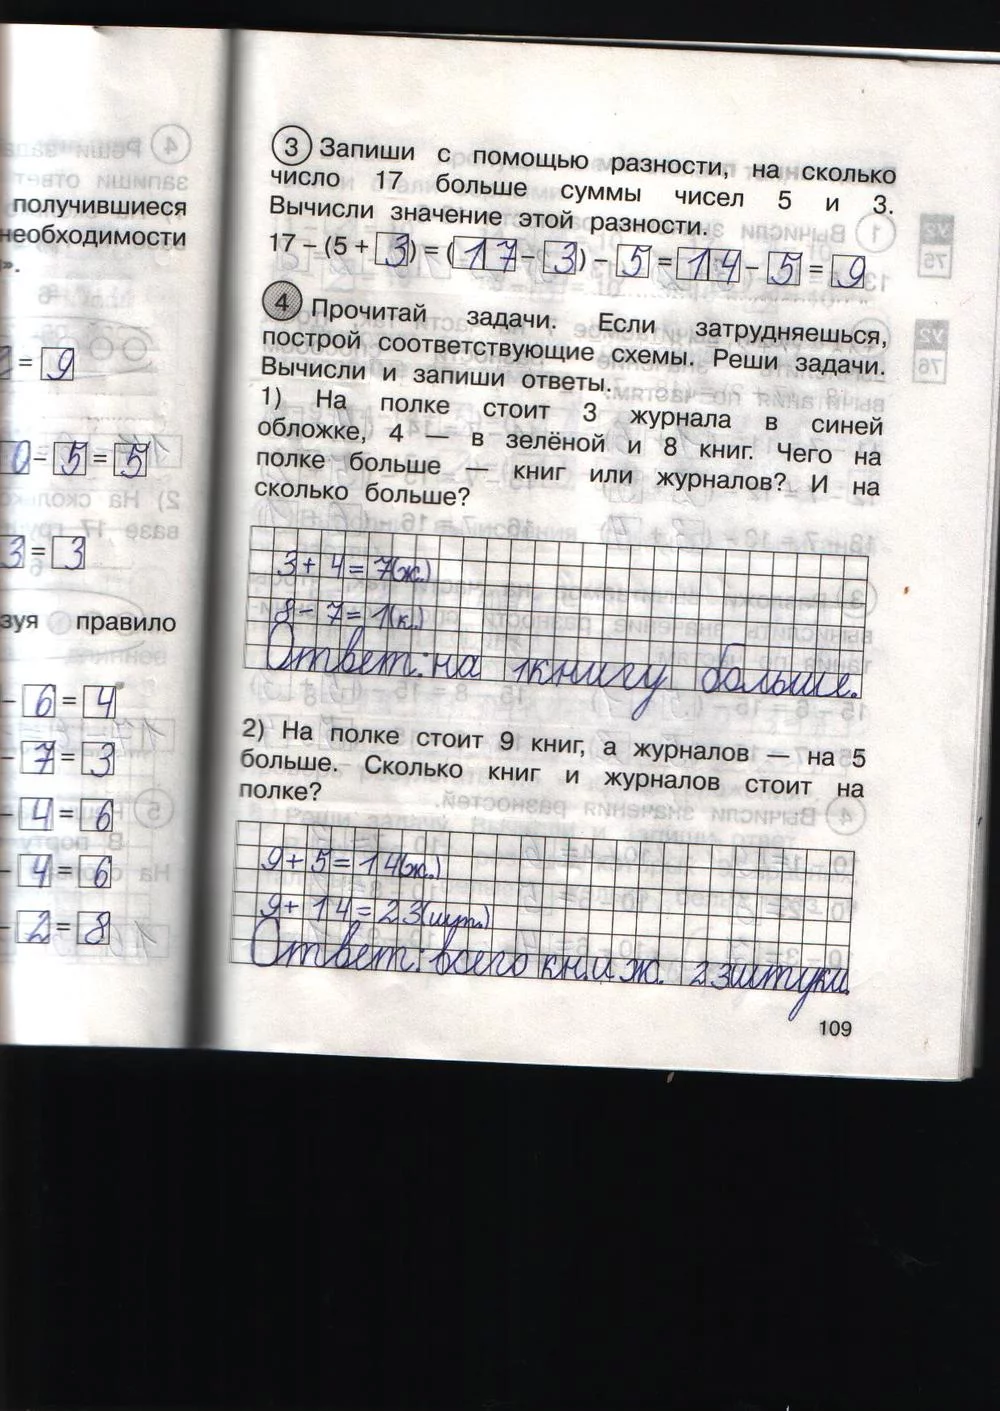 получившиеся
необходимости
».
= 9
0 - 5 = 5
3 = 3
зуя правило
- 6 = 4
- 7 = 3
- 4 = 6
- 4 = 6
- 2 = 8
3 Запиши с помощью разности, на сколько
число 17 больше суммы чисел 5 и 3.
Вычисли значение этой разности.
17 – (5 + 3) = (17 – 3) – 5 = 14 – 5 = 9
4 Прочитай задачи. Если затрудняешься,
построй соответствующие схемы. Реши задачи.
Вычисли и запиши ответы.
1) На полке стоит 3 журнала в синей
обложке, 4 — в зелёной и 8 книг. Чего на
полке больше — книг или журналов? И на
сколько больше?
3 + 4 = 7(ж.)
8 – 7 = 1(к.)
Ответ: на 1книгу больше.
2) На полке стоит 9 книг, а журналов — на 5
больше. Сколько книг и журналов стоит на
полке?
9 + 5 = 14(ж.)
9 + 14 = 23(шт.)
Ответ: всего кн. и ж. 23штуки.
109